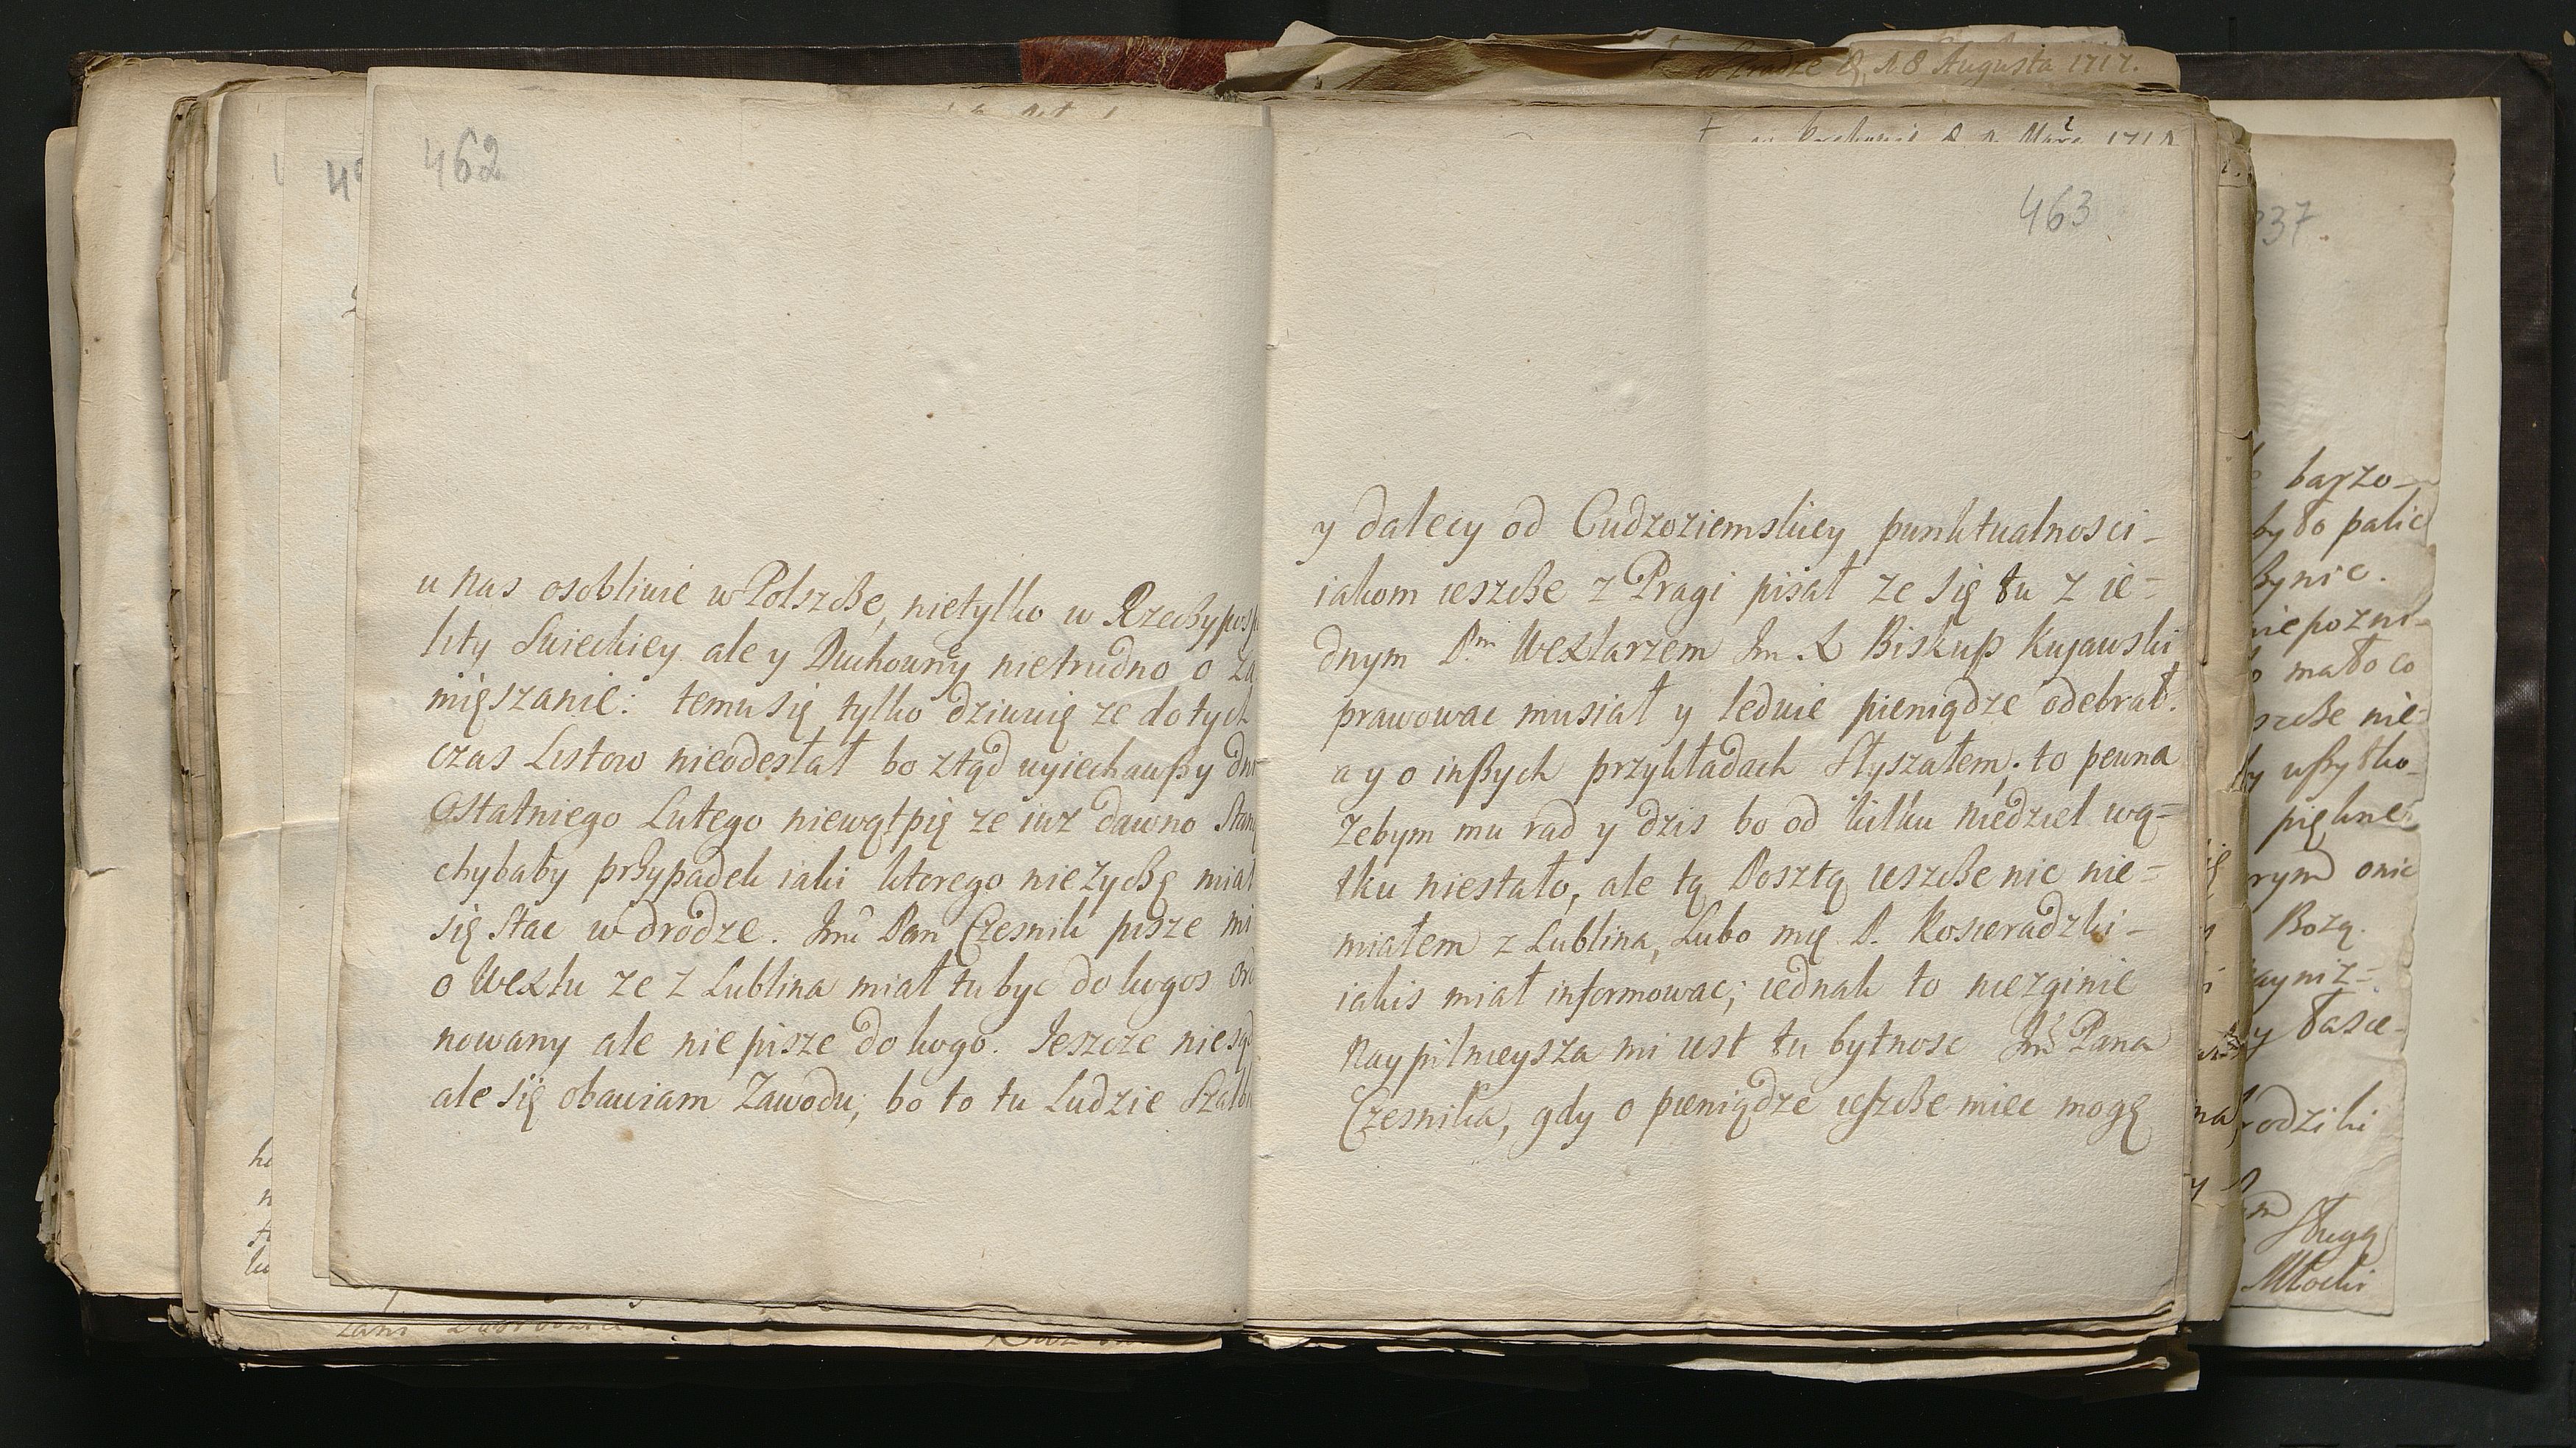 462
u nas osobliwie w Polszcże, nietylko w Rzeczypospo
lity Swieckiey ale y Duchowny nietrudno o Za
mięszanie: temu się tylko dziwuię ze do tych
czas Listow nieodesłał bo ztąd wyiechawszy dni
Ostatniego Lutego niewątpię ze iuz dawno Stan
chybaby przypadek iaki ktorego nie Zyczę miał
się Stac w drodze. Jmć Pan Czesnik pisze mi
o Wexlu ze z Lublina miał tu byc do kogos ord
nowany ale nie pisze do kogo. Jeszcze nie są
ale się obawiam Zawodu; bo to tu Ludzie Szalbi
463
y dalecy od Cudzoziemskiey punktualnosci
iakom ieszcze z Pragi pisał ze się tu z ie-
dnym P.m Wexlarzem Jm X Biskup Kujawski
prawowac musiał y ledwie pieniądze odebrał.
a y o inszych przykładach Słyszałem; to pewna
Zebym mu rad y dzis bo od kilku niedziel wą-
tku niestało, ale tą Posztą ieszcze nic nie-
miałem z Lublina, Lubo mię P. Kosieradzki
iakis miał informowac; iednak to niezginie
Naypilnieysza mi iest tu bytnosc Jmć Pana
Czesnika, gdy o pieniądze ieszcze miec mogę
w Pradze D. 18 Augusta 1717.
337.
barzo
było palic
mało co
rym onic
Bozą.
Sługą
Młocki